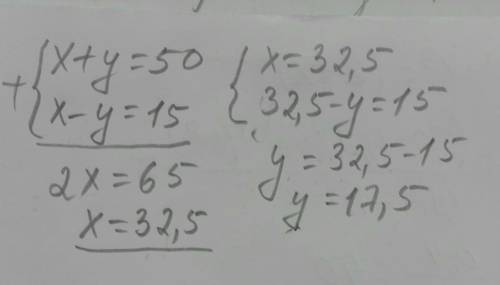 +{x+y=50
x-y=15
2x=65
x=32,5
{x=32,5
32,5-y=15
y=32,5-15
y=17,5